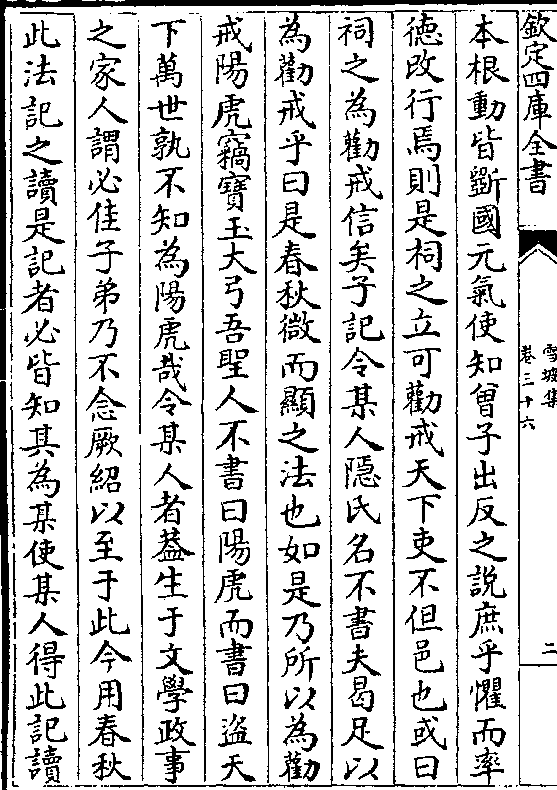 欽定四庫全書
雪坡集
卷三十六
二
本根動皆斵國元氣使知曾子出反之說庶乎懼而率
德改行焉則是祠之立可勸戒天下吏不但邑也或曰
祠之為勸戒信矣子記令某人隠氏名不書夫曷足以
為勸戒乎曰是春秋微而顯之法也如是乃所以為勸
戒陽虎竊寶玉大弓吾聖人不書曰陽虎而書曰盗天
下萬世孰不知為陽虎哉令某人者葢生于文學政事
之家人謂必佳子弟乃不念厥紹以至于此今用春秋
此法記之讀是記者必皆知其為某使某人得此記讀